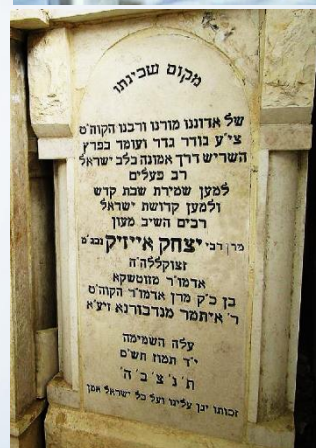 מקום שכינתו
של אדוננו מורנו ורבנו הקוה"ט
צי"ע גודר גדר ועומד בפרץ
השריש דרך אמונה בלב ישראל
רב פעלים
למען שמירת שבת קדש
ולמען קדושת ישראל
רבים השיב מעון
מרן רבי יצחק אייזיק
זצוקללה"ה
אדמו"ר מזוטשקא
בן כ"ק מרן אדמו"ר הקוה"ט
ר' איתמר מנדבורנא זיע"א
עלה השמימה
י"ד תמוז תש"ם
ת' נ' צ' ב' ה'
זכותו יגן עלינו ועל כל ישראל אמן